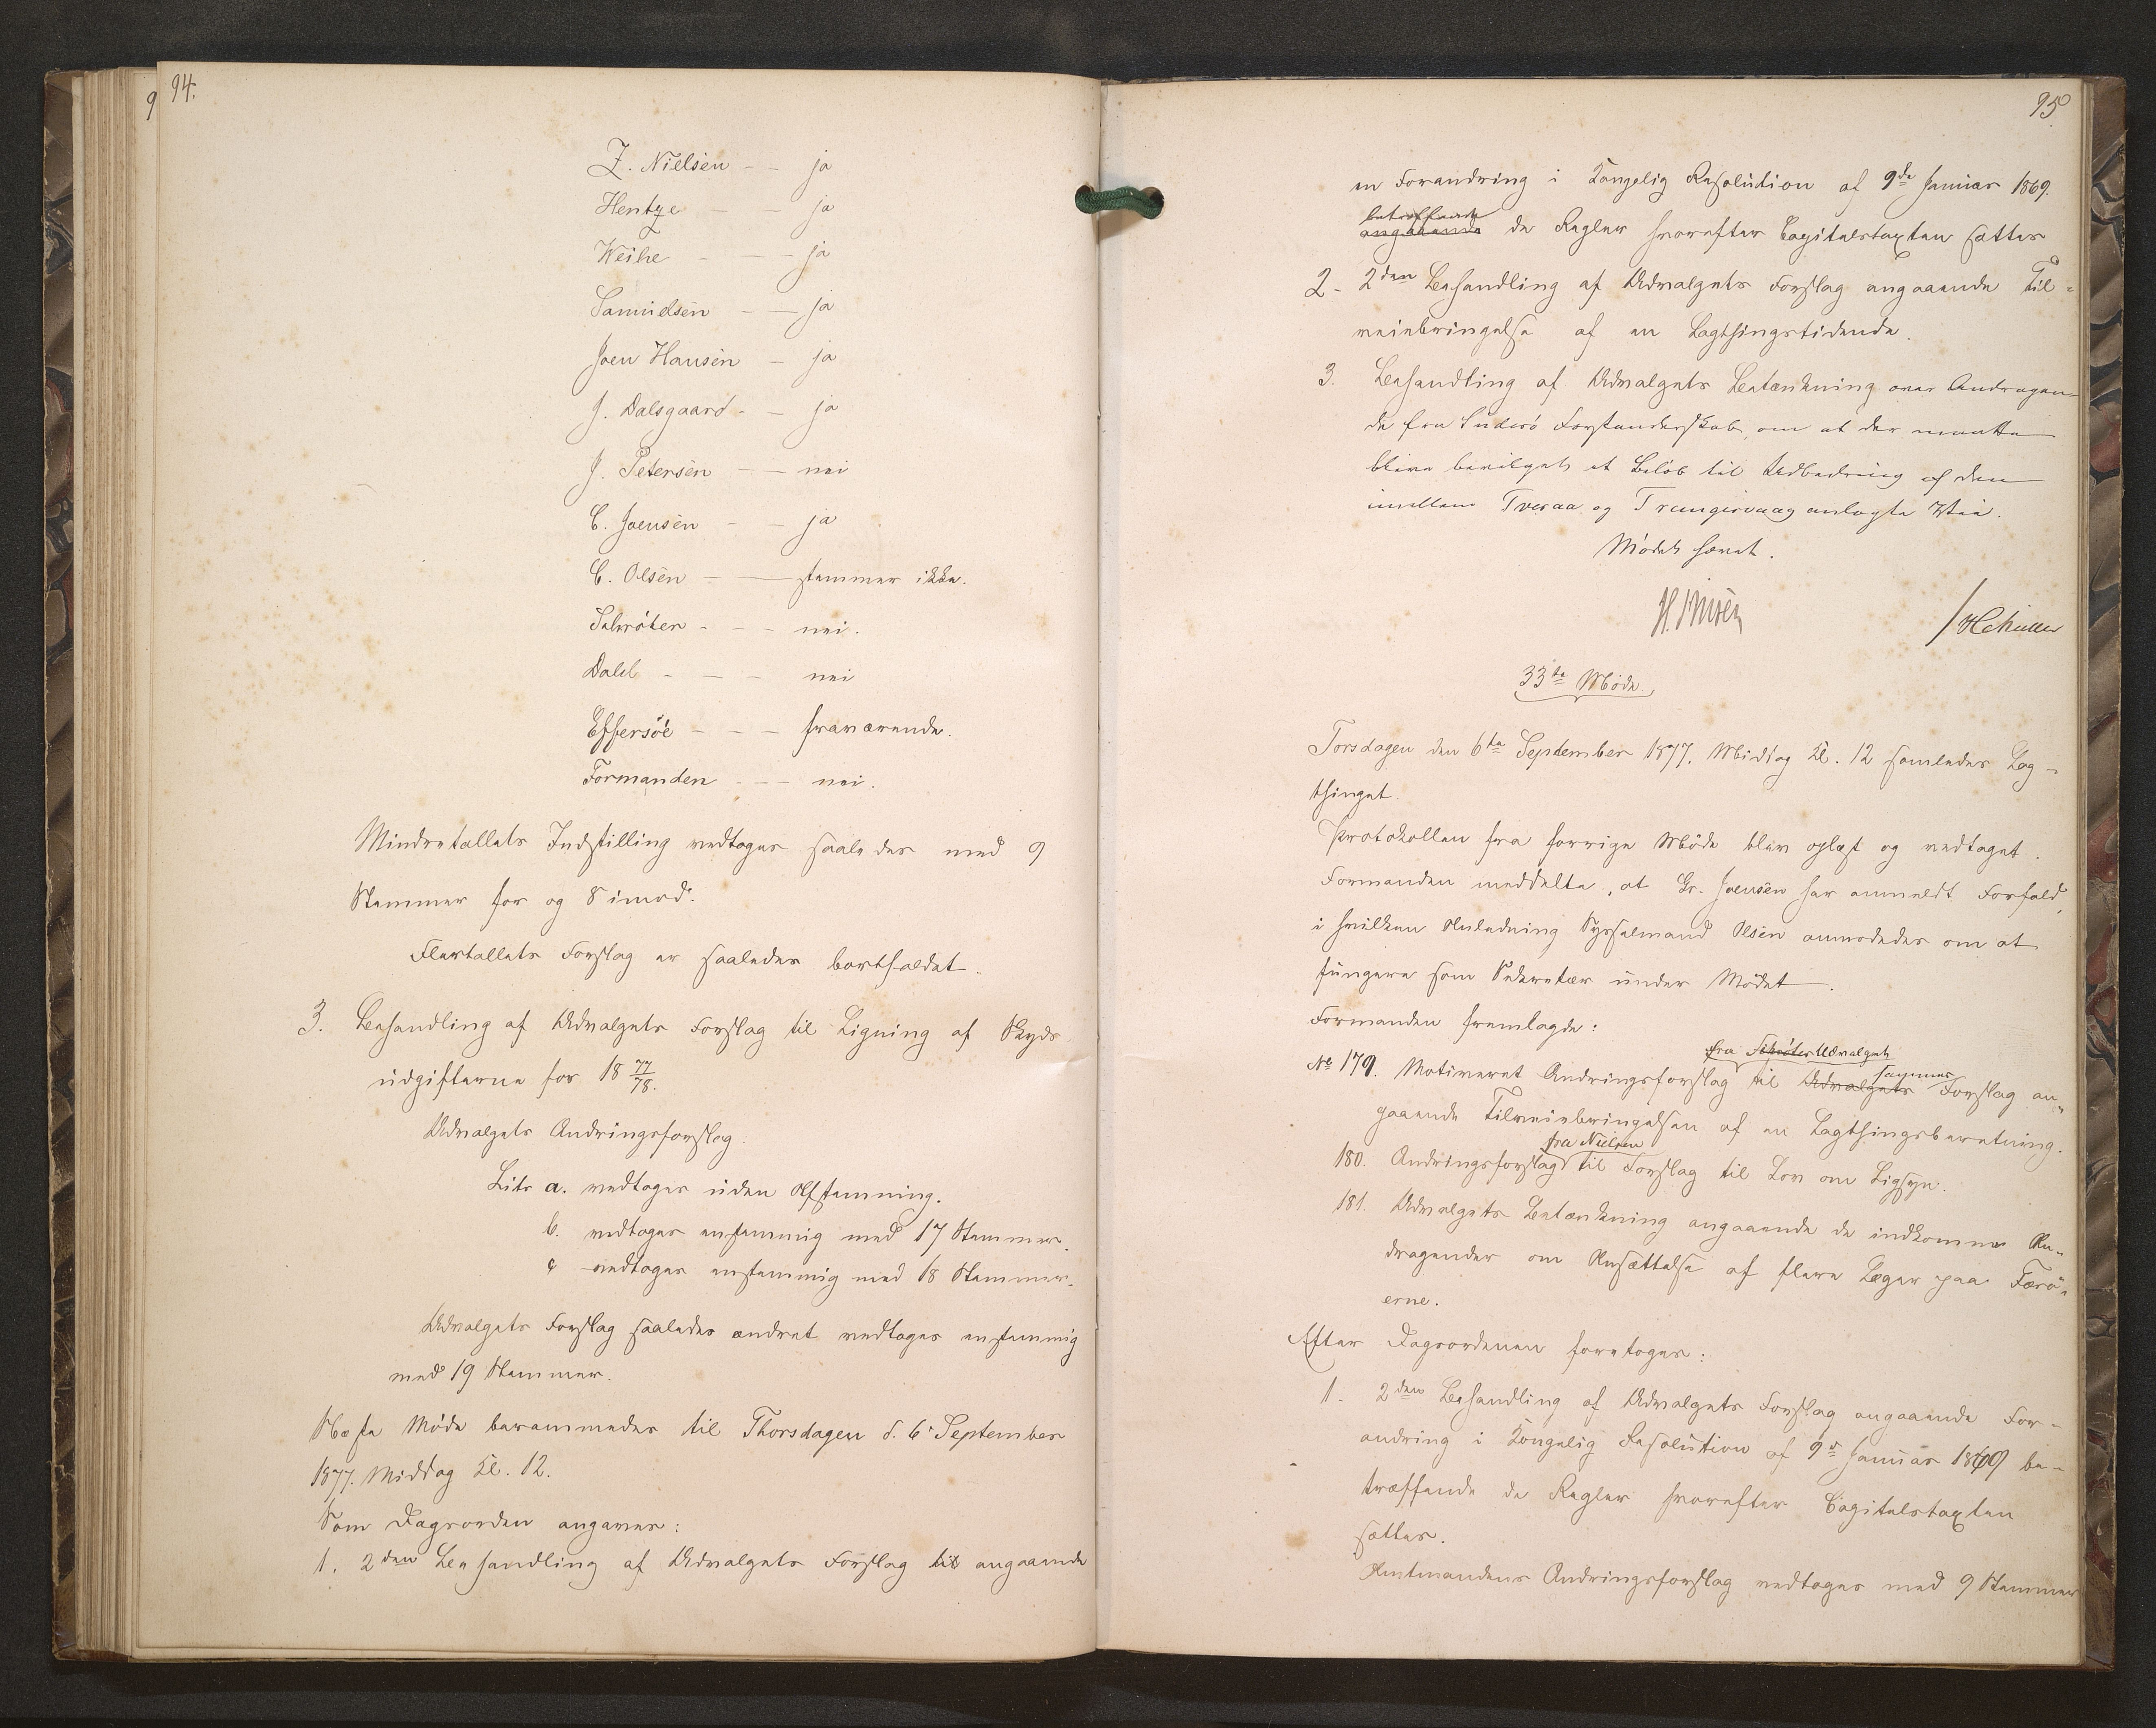 94.
9
Z. Nielsen - - ja
Hentze - - ja
Weihe - - - ja
Samuelsen - - ja
Joen Hansen - ja
J. Dalsgaard - - ja
J. Petersen - - nei
C. Joensen - - ja
C. Olsen - - stemmer ikke.
Schrøter - - - nei.
Dahl - - - nei
Effersøe - - - fraværende.
Formanden - - - nei.
Mindretallets Indstilling vedtoges saaledes med 9
Stemmer for og 8 imod.
Flertallets Forslag er saaledes bortfaldet.
3. Behandling af Udvalgets Forslag til Ligning af Skyds
udgifterne for 18 77/78.
Udvalgets Ændringsforslag.
Litr a. vedtoges uden Afstemning.
b. vedtoges enstemmig med 17 Stemmer.
c vedtoges enstemmig med 18 Stemmer.
Udvalgets Forslag saaledes ændret vedtoges enstemmig
med 19 Stemmer.
Næste Møde berammedes til Thorsdagen d. 6' September
1877. Middag Kl. 12.
Som Dagsorden angaves:
1. 2den Behandling af Udvalgets Forslag til angaaende
95.
en Forandring i Kongelig Resolution af 9de Januar 1869.
betræffende
angaaende de Regler hvorefter Capitelstaxten sættes
2. 2den Behandling af Udvalgets Forslag angaaende Til=
veiebringelse af en Lagthingstidende.
3. Behandling af Udvalgets Betænkning over Andragen=
de fra Suderø Forstanderskab, om at der maatte
blive bevilget et Beløb til Udbedring af den
imellem Tveraa og Trangisvaag anlagte Vei.
Mødet hævet.
33te Møde
Torsdagen den 6te September 1877. Middag Kl. 12 samledes Lag-
thinget.
Protokollen fra forrige Møde blev oplæst og vedtaget.
Formanden meddelte, at Gr. Joensen har anmeldt Forfald,
i hvilken Anledning Sysselmand Olsen anmodedes om at
fungere som Sekretær under Mødet.
Formanden fremlagde:
fra Schrøter Udvalgets
sammes
No 179. Motiveret Ændringsforslag til Udvalgets Forslag an„
gaaende Tilveiebringelsen af en Lagthingsberetning.
fra Nielsen
180. Ændringsforslag til Forslag til Lov om Ligsyn.
181. Udvalgets Betænkning angaaende de indkomne An„
dragender om Ansættelse af flere Læger paa Færø„
erne.
Efter Dagsordenen foretoges:
1. 2den Behandling af Udvalgets Forslag angaaende For-
andring i Kongelig Resolution af 9de Januar 1869 be-
træffende de Regler hvorefter Capitelstaxten
sættes.
Amtmandens Ændringsforslag vedtoges med 9 Stemmer